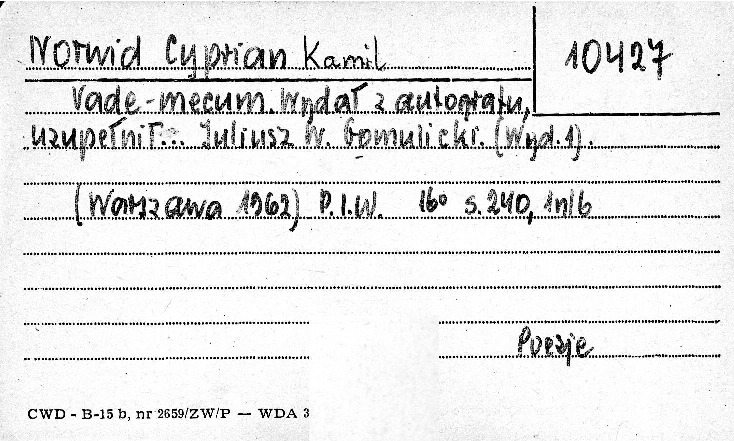 Norwid Cyprian Kamil
10427
Vade-mecum. Wydał z autografu,
uzupełnił... Juliusz W. Gomulicki. (Wyd. 1).
(Warszawa 1962) P.I.W. 16° s. 240, 1nlb
Poezje
CWD - B-15 b, nr 2659/ZW/P — WDA 3